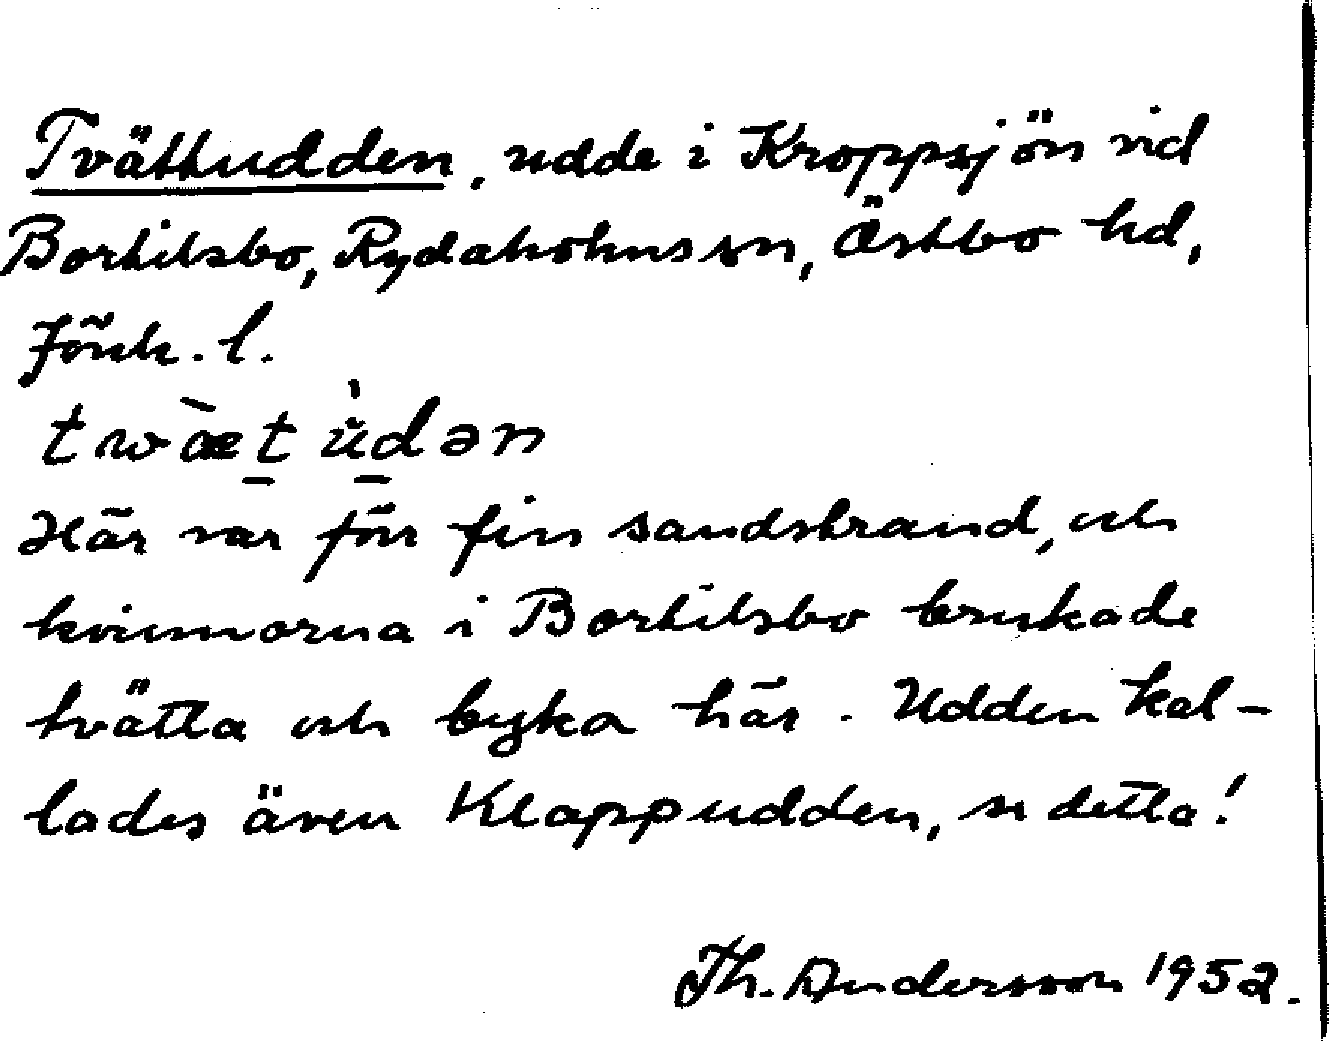 Tvättudden, udde i Kroppsjön vid
Bortilsbo, Rydaholms sn, Östbo hd,
Jönk. l.
twæ̀t ùdən
Här var förr fin sandstrand, och
kvinnorna i Bortilsbo brukade
tvätta och byka här. Udden kal-
lades även Klappudden, se detta!
Th. Andersson 1952.